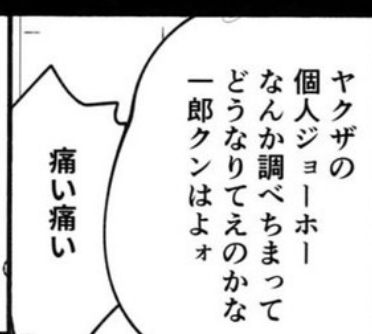 ヤクザの
個人ジョーホー
なんか調べちまって
どうなりてえのかな
一郎クンはよォ
痛い痛い